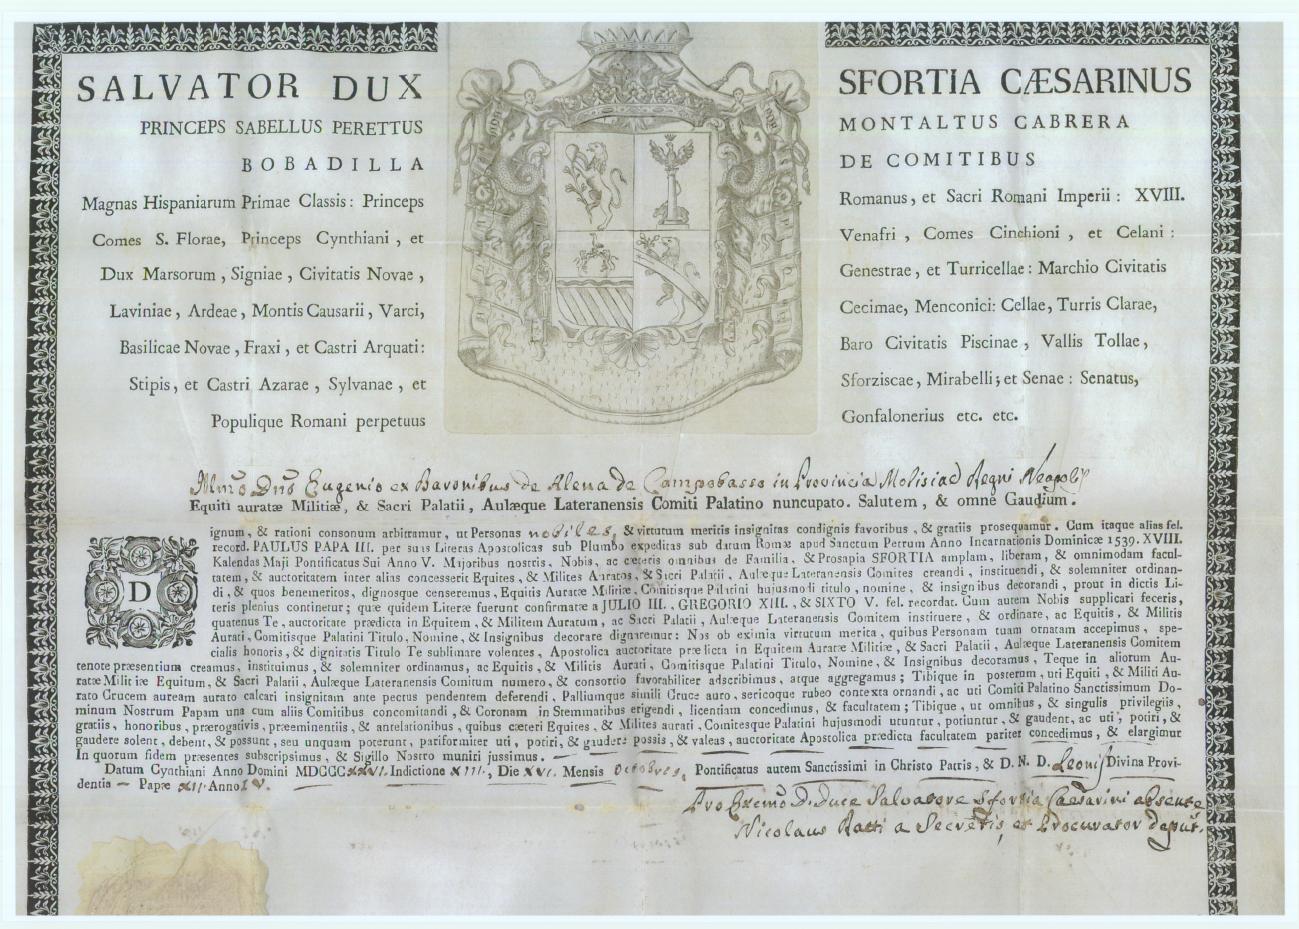 SALVATOR DUX
PRINCEPS SABELLUS PERETTUS
BOBADILLA
Magnas Hispaniarum Primae Classis: Princeps
Comes S. Florae, Princeps Cynthiani, et
Dux Marsorum, Signiae, Civitatis Novae,
Laviniae, Ardeae, Montis Causarii, Varci,
Basilicae Novae, Fraxi, et Castri Arquati:
Stipis, et Castri Azarae, Sylvanae, et
Populique Romani perpetuus
SFORTIA CÆSARINUS
MONTALTUS CABRERA
DE COMITIBUS
Romanus, et Sacri Romani Imperii: XVIII.
Venafri, Comes Cinchioni, et Celani:
Genestrae, et Turricellae: Marchio Civitatis
Cecimae, Menconici: Cellae, Turris Clarae,
Baro Civitatis Piscinae, Vallis Tollae,
Sforziscae, Mirabelli; et Senae: Senatus,
Gonfalonerius etc. etc.
Illmo Dno Eugenio ex Baronibus de Alena de Campobasso in Provincia Molisiae Regni Neapolis
Equiti auratæ Militiæ, & Sacri Palatii, Aulæque Lateranensis Comiti Palatino nuncupato. Salutem, & omne Gaudium.
Dignum, & rationi consonum arbitramur, ut Personas nobiles, & virtutum meritis insignitas condignis favoribus, & gratiis prosequamur. Cum itaque alias fel.
record. PAULUS PAPA III. per suas Literas Apostolicas sub Plumbo expeditas sub datum Romæ apud Sanctum Petrum Anno Incarnationis Dominicæ 1539. XVIII.
Kalendas Maji Pontificatus Sui Anno V. Majoribus nostris, Nobis, ac cæteris omnibus de Familia, & Prosapia SFORTIA amplam, liberam, & omnimodam facul-
tatem, & auctoritatem inter alias concesserit Equites, & Milites Auratos, & Sacri Palatii, Aulæque Lateranensis Comites creandi, instituendi, & solemniter ordinan-
di, & quos benemeritos, dignosque censeremus, Equitis Auratæ Militiæ, Comitisque Palatini hujusmodi titulo, nomine, & insignibus decorandi, prout in dictis Li-
teris plenius continetur; quæ quidem Literæ fuerunt confirmatæ a JULIO III., GREGORIO XIII., & SIXTO V. fel. recordat. Cum autem Nobis supplicari feceris,
quatenus Te, auctoritate prædicta in Equitem, & Militem Auratum, ac Sacri Palatii, Aulæque Lateranensis Comitem instituere, & ordinare, ac Equitis, & Militis
Aurati, Comitisque Palatini Titulo, Nomine, & Insignibus decorare dignaremur: Nos ob eximia virtutum merita, quibus Personam tuam ornatam accepimus, spe-
cialis honoris, & dignitatis Titulo Te sublimare volentes, Apostolica auctoritate prædicta in Equitem Auratæ Militiæ, & Sacri Palatii, Aulæque Lateranensis Comitem
tenore præsentium creamus, instituimus, & solemniter ordinamus, ac Equitis, & Militis Aurati, Comitisque Palatini Titulo, Nomine, & Insignibus decoramus, Teque in aliorum Au-
ratæ Militiæ Equitum, & Sacri Palatii, Aulæque Lateranensis Comitum numero, & consortio favorabiliter adscribimus, atque aggregamus; Tibique in posterum, uti Equiti, & Militi Au-
rato Crucem auream aurato calcari insignitam ante pectus pendentem deferendi, Palliumque simili Cruce auro, sericoque rubeo contexta ornandi, ac uti Comiti Palatino Sanctissimum Do-
minum Nostrum Papam una cum aliis Comitibus concomitandi, & Coronam in Stemmatibus erigendi, licentiam concedimus, & facultatem; Tibique, ut omnibus, & singulis privilegiis,
gratiis, honoribus, prærogativis, præeminentiis, & antelationibus, quibus cæteri Equites, & Milites aurati, Comitesque Palatini hujusmodi utuntur, potiuntur, & gaudent, ac uti, potiri, &
gaudere solent, debent, & possunt, seu unquam poterunt, pariformiter uti, potiri, & gaudere possis, & valeas, auctoritate Apostolica prædicta facultatem pariter concedimus, & elargimur
In quorum fidem præsentes subscripsimus, & Sigillo Nostro muniri jussimus.
Datum Cynthiani Anno Domini MDCCCXXVI. Indictione XIII., Die XVI. Mensis Octobris, Pontificatus autem Sanctissimi in Christo Patris, & D. N. D. Leonis Divina Provi-
dentia Papæ XII. Anno IV.
Pro Excmo D. Duce Salvatore Sfortia Caesarini absente
Nicolaus Ratti a Secretis, et Procurator deput.